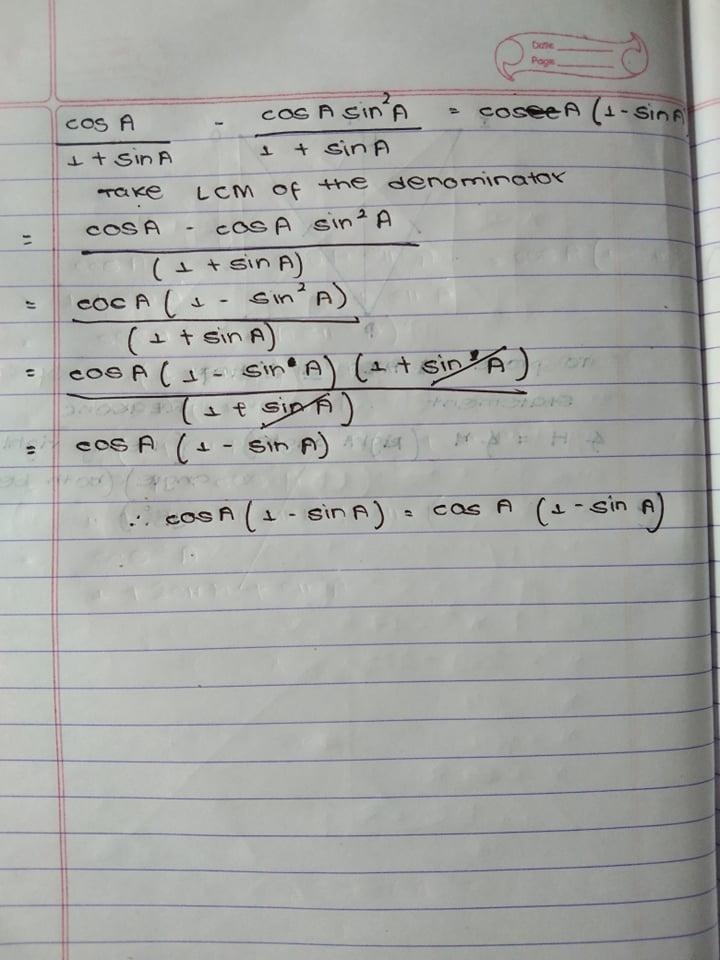 Date
Page
cos A / 1 + sin A - cos A sin²A / 1 + sin A = cosec A (1 - sin A
Take LCM of the denominator
= cos A - cos A sin² A / (1 + sin A)
= coc A (1 - sin² A) / (1 + sin A)
= cos A (1 - sin A) (1 + sin A) / (1 + sin A)
= cos A (1 - sin A)
∴ cos A (1 - sin A) = cos A (1 - sin A)